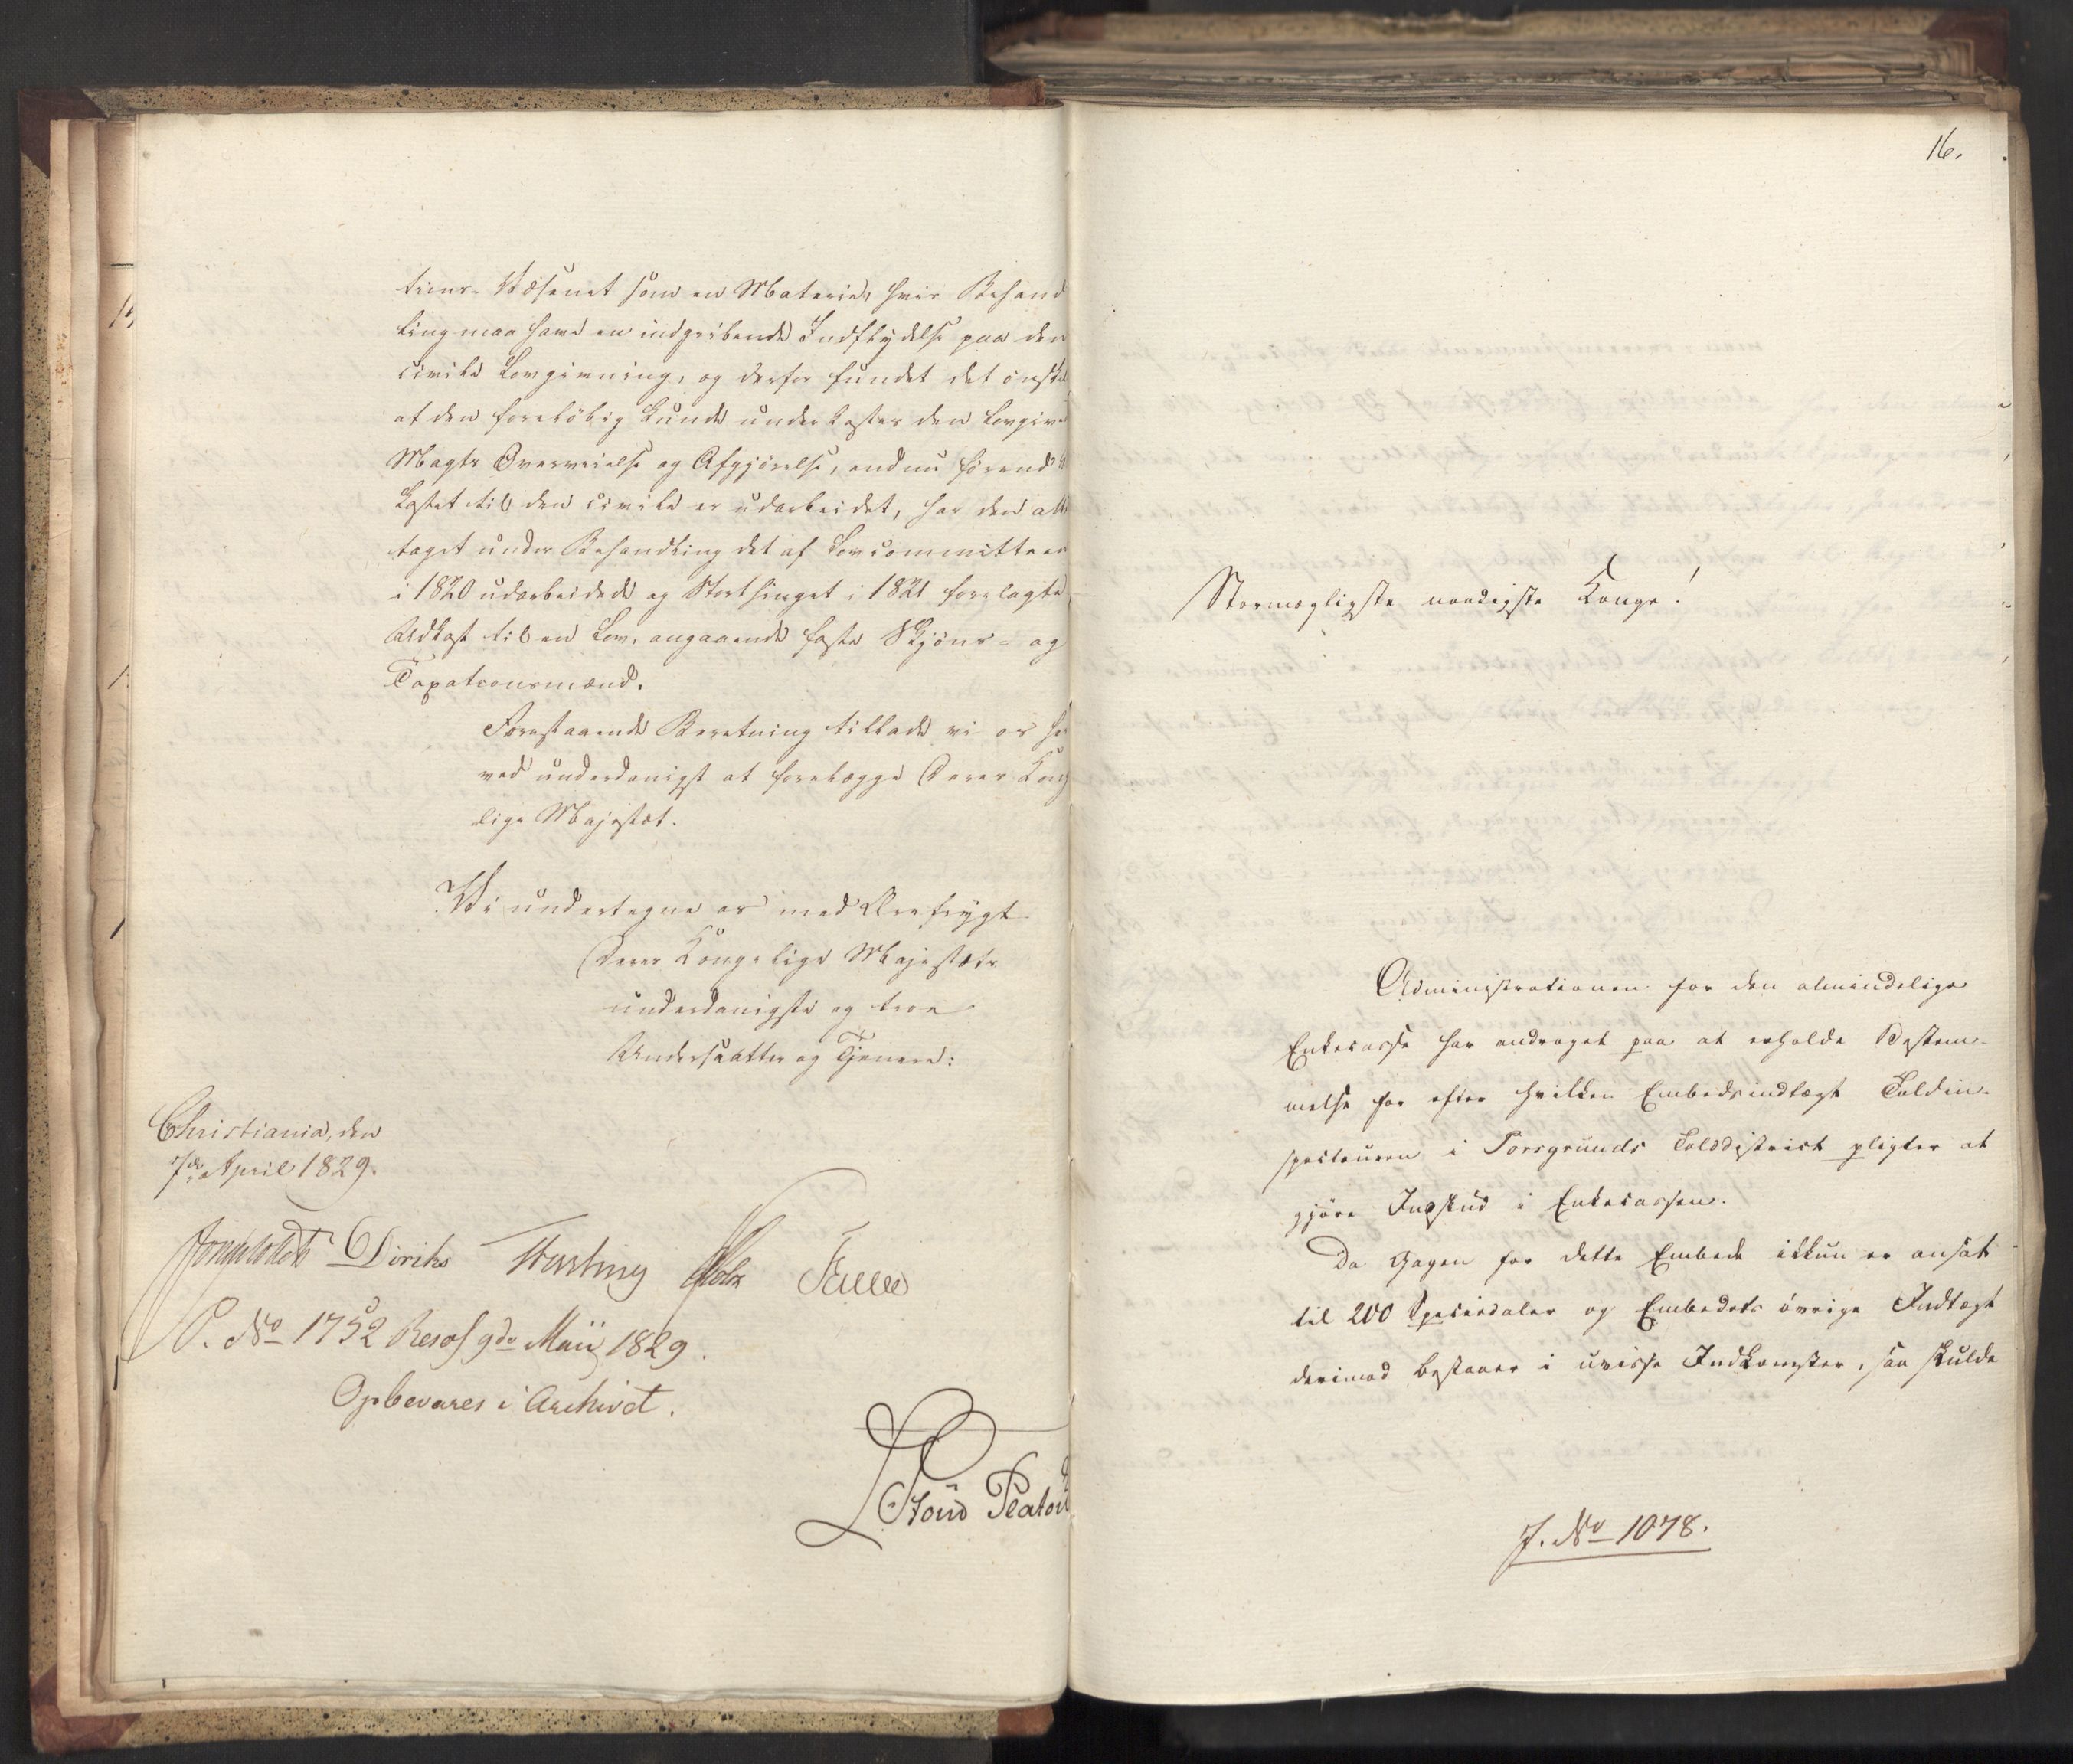 tions-Væsenet som en Materie, hvis Behand
ling maa have en indgribende Indflydelse paa den
civile Lovgivning, og derfor fundet det ønske
at den foreløbig kunde underkastes den lovgive
Magts Overveielse og Afgjørelse, endnu förend
kastet til den civile er udarbeidet, har den alt
taget under Behandling det af Lovcommitteen
i 1820 udarbeidede og Storthinget i 1821 forelagte
Udkast til en Lov, angaaende faste Skjöns- og
Taxationsmænd.
Foranstaaende Beretning tillade vi os her
ved underdanigst at forelægge Deres Konge
lige Majestæt.
Vi undertegne os med Ærefrygt
Deres Kongelige Majestæts
underdanigste og troe
Undersaatter og Tjenere:
Christiania, den
7de April 1829.
Diriks
P. No 1752 Resol 9de Maii 1829.
Opbevares i Archivet.
16.
Stormægtigste naadigste Konge!
Administrationen for den almindelige
Enkecasse har andraget paa at erholde Bestem-
melse for efter hvilken Embedsindtægt Toldin-
specteuren i Porsgrunds Tolddistrict pligter at
gjøre Indskud i Enkecassen.
Da Gagen for dette Embede ikkun er ansat
til 200 Speciedaler og Embedets øvrige Indtægt
derimod bestaaer i uvisse Indkomster, saa skulde
J. No 1078.